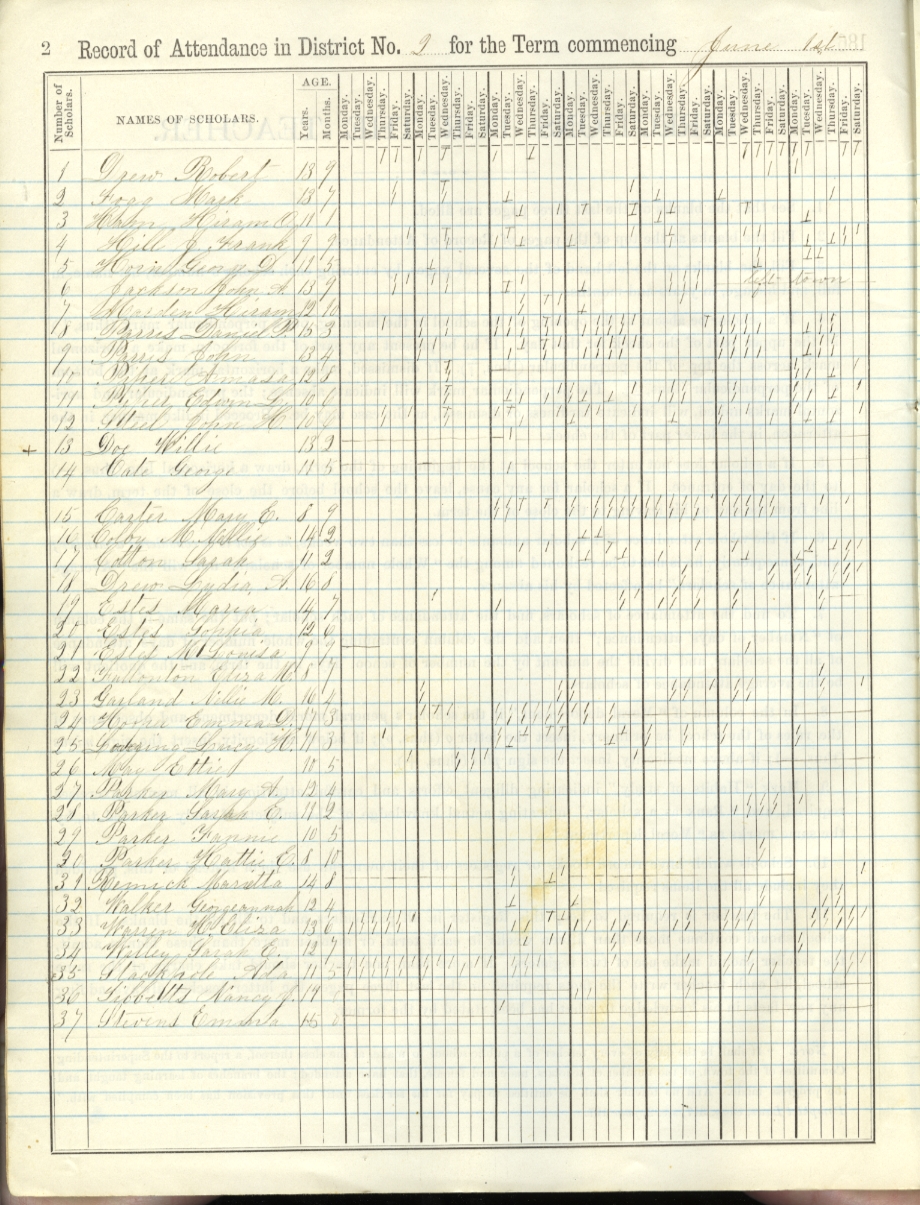 2 Record of Attendance in District No. 9 for the Term commencing June 1st
AGE.
Number of Scholars. NAMES OF SCHOLARS. Years. Months. Monday. Tuesday. Wednesday. Thursday. Friday. Saturday. Monday. Tuesday. Wednesday. Thursday. Friday. Saturday. Monday. Tuesday. Wednesday. Thursday. Friday. Saturday. Monday. Tuesday. Wednesday. Thursday. Friday. Saturday. Monday. Tuesday. Wednesday. Thursday. Friday. Saturday. Monday. Tuesday. Wednesday. Thursday. Friday. Saturday. Monday. Tuesday. Wednesday. Thursday. Friday. Saturday.
1 Drew Robert 13 9
2 Fogg Mark 13 7
3 Hiram O. 11 1
4 Hill J. Frank 9 9
5 Horn George D. 11 5
6 Jackson John A. 13 9 left town
7 Marden Hiram 12 10
8 Parris Daniel P. 15 3
9 Parris John 13 4
10 Piper Amasa 12 8
11 Piper Edwin 10 6
12 Steel John H. 10 6
+ 13 Doe Willie 13 2
14 Cate George 11 5
15 Carter Mary E. 8 9
16 Colby M. Nellie 14 2
17 Cotton Sarah 11 2
18 Drew Lydia, A. 16 8
19 Estes Maria 14 7
20 Estes Sophia 12 6
21 Estes M Louisa 9 7
22 Fullonton Eliza M. 8 7
23 Garland Nellie M. 16 4
24 Hooper Emma 17 3
25 Lucy H. 11 3
26 May Etti 10 5
27 Parker Mary A. 12 4
28 Parker Sarah E. 11 2
29 Parker Fannie 10 5
30 Parker Hattie E. 8 10
31 Remick Maretta 14 8
32 Walker Georgeannah 12 4
33 Warren H. Eliza 13 6
34 Willey Sarah E. 12 7
35 Stackpole Ada 11 5
36 Tibbetts Nancy J. 17
37 Stevens Emma 15